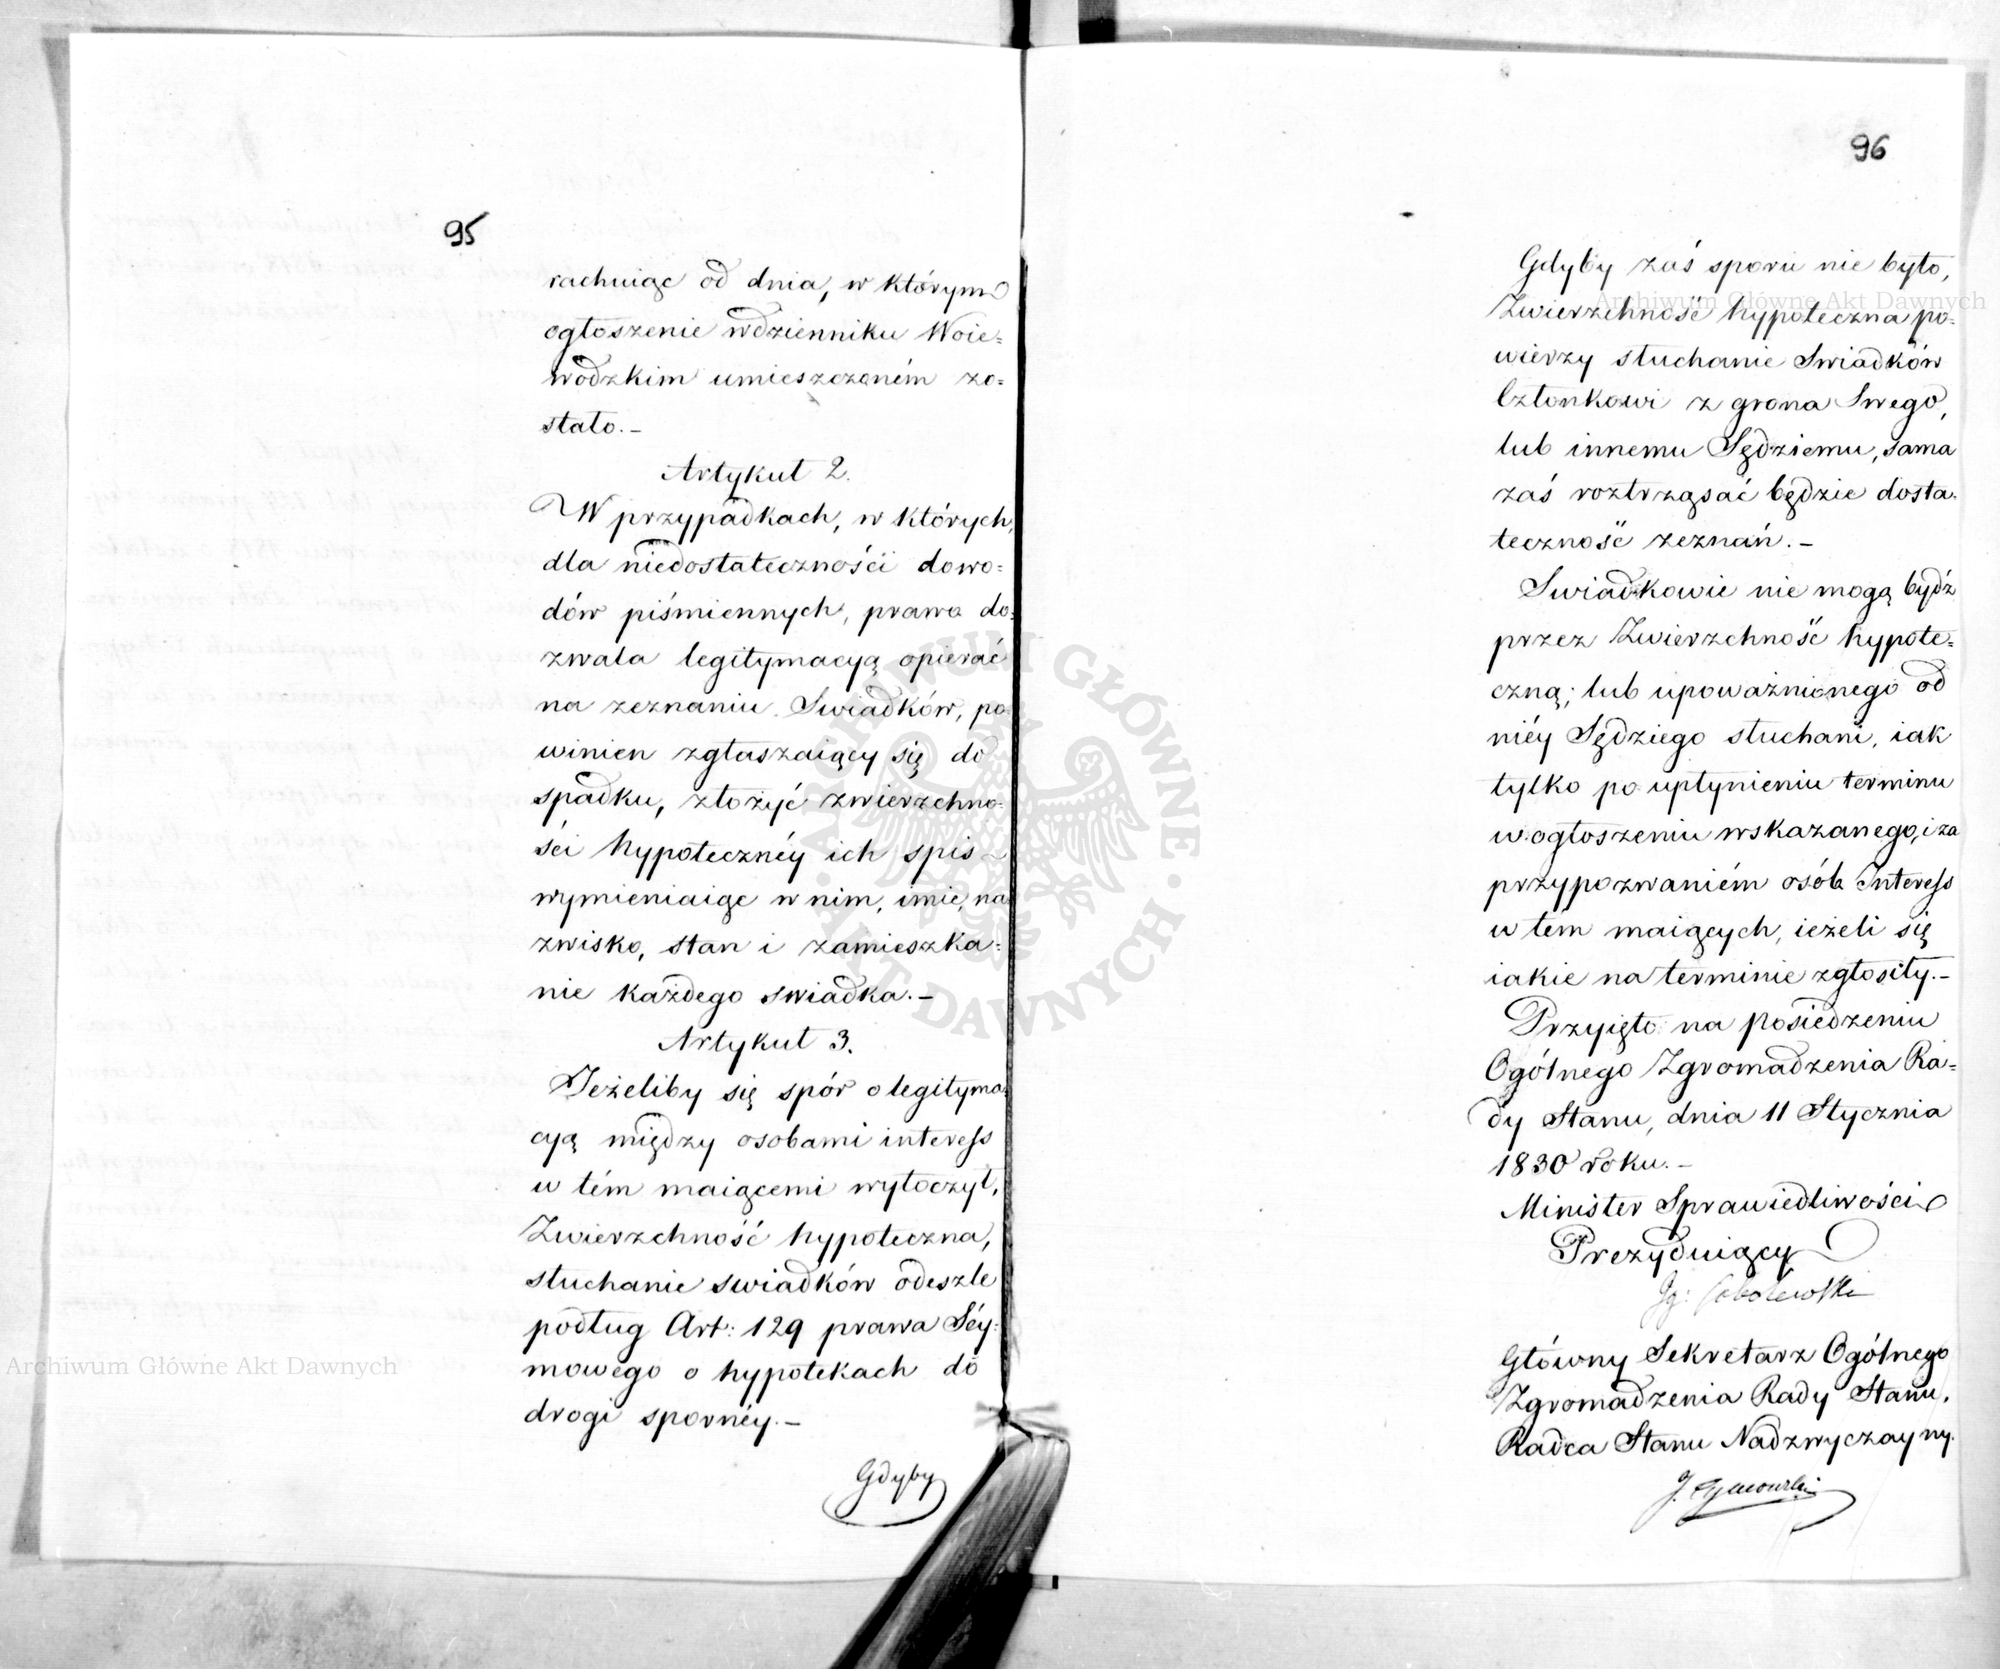 95
rachuiąc od dnia, w którym
ogłoszenie w dzienniku Woie=
wodzkim umieszczoném zo=
stało.–
Artykuł 2.
W przypadkach, w których,
dla niedostateczności dowo=
dów piśmiennych, prawo do=
zwala legitymacyą opierać
na zeznaniu Swiadków, po=
winien zgłaszaiący się do
spadku, złożyć zwierzchno=
ści hypotecznéy ich spis
wymieniaiąc w nim, imie, na=
zwisko, stan i zamieszka=
nie każdego swiadka.–
Artykuł 3.
Jeżeliby się spór o legityma=
cyą między osobami interess
w tém maiącemi wytoczył,
Zwierzchność hypoteczna,
słuchanie swiadków odeszle
podług Art: 129 prawa Séy=
mowego o hypotekach do
drogi spornéy.–
Gdyby
96
Gdyby zaś sporu nie było,
Zwierzchność hypoteczna po=
wierzy słuchanie Swiadków
Członkowi z grona Swego,
lub innemu Sędziemu, sama
zaś roztrząsać będzie dosta=
teczność zeznań.–
Swiadkowie nie mogą bydź
przez Zwierzchność hypote=
czną; lub upoważnionego od
niéy Sędziego słuchani, iak
tylko po upłynieniu terminu
w ogłoszeniu wskazanego, i za
przypozwaniém osób Interess
w tém maiących, ieżeli się
iakie na terminie zgłosiły.–
Przyięto na posiedzeniu
Ogólnego Zgromadzenia Ra=
dy Stanu, dnia 11 Stycznia
1830 roku.–
Minister Sprawiedliwości
Prezyduiący
Ig: Sobolewski
Główny Sekretarz Ogólnego
Zgromadzenia Rady Stanu,
Radca Stanu Nadzwyczayny.
J. Tymowski
Archiwum Główne Akt Dawnych
Archiwum Główne Akt Dawnych
ARCHIWUM GŁÓWNE · AKT DAWNYCH ·